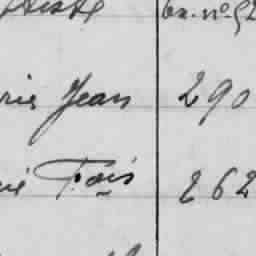 bx. nº 52
rie Jean 290
rie Fçois 262